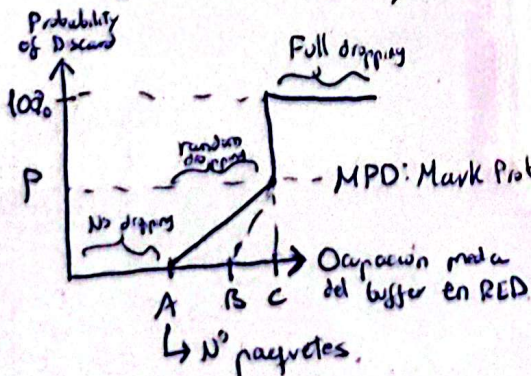 Probability
of Discard
Full dropping
100%
random
dropping
P
MPD: Mark Prob
No dropping
Ocupación media
del buffer en RED
A
B
C
↳ Nº paquetes.